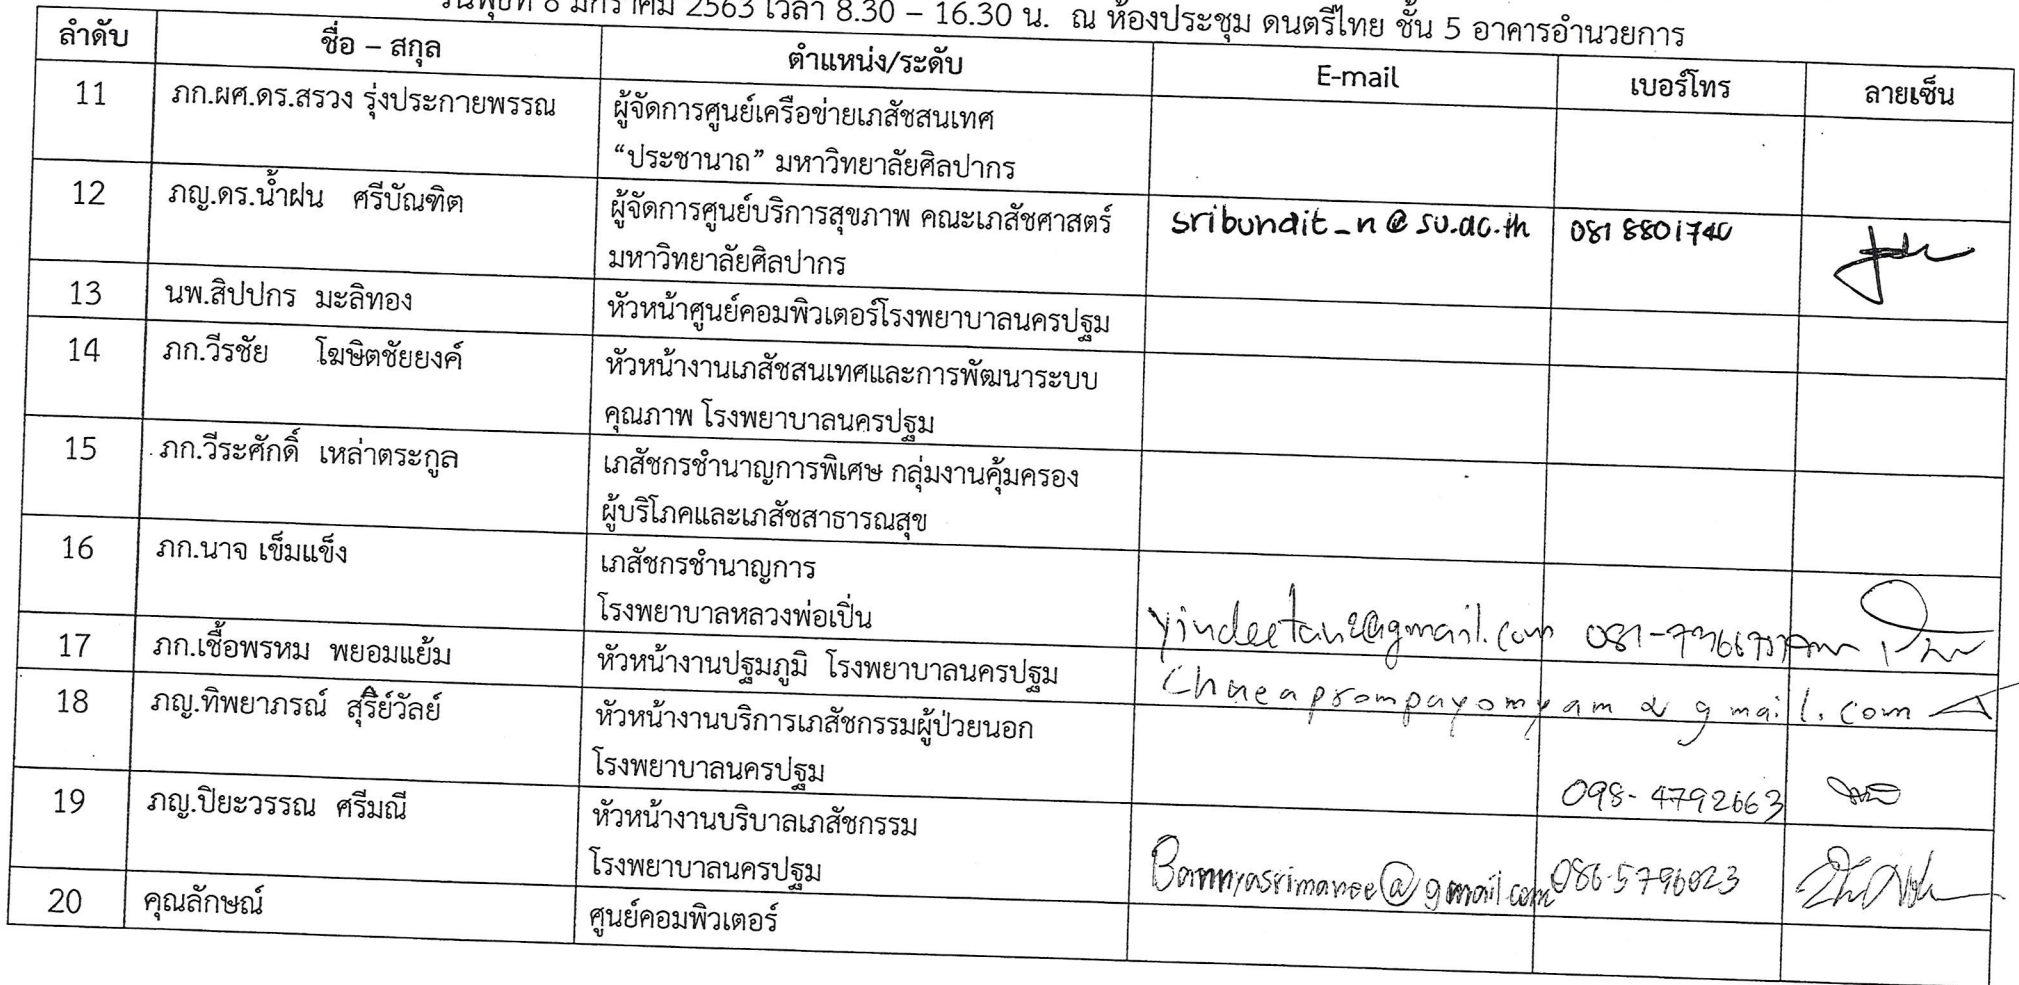 วันพุธที่ 8 มกราคม 2563 เวลา 8.30 – 16.30 น. ณ ห้องประชุม ดนตรีไทย ชั้น 5 อาคารอำนวยการ
ลำดับ ชื่อ – สกุล ตำแหน่ง/ระดับ E-mail เบอร์โทร ลายเซ็น
11 ภก.ผศ.ดร.สรวง รุ่งประกายพรรณ ผู้จัดการศูนย์เครือข่ายเภสัชสนเทศ
“ประชานาถ” มหาวิทยาลัยศิลปากร
12 ภญ.ดร.น้ำฝน ศรีบัณฑิต ผู้จัดการศูนย์บริการสุขภาพ คณะเภสัชศาสตร์ sribundit_n@su.ac.th 081 8801740
มหาวิทยาลัยศิลปากร
13 นพ.สิปปกร มะลิทอง หัวหน้าศูนย์คอมพิวเตอร์โรงพยาบาลนครปฐม
14 ภก.วีรชัย โฆษิตชัยยงค์ หัวหน้างานเภสัชสนเทศและการพัฒนาระบบ
คุณภาพ โรงพยาบาลนครปฐม
15 ภก.วีระศักดิ์ เหล่าตระกูล เภสัชกรชำนาญการพิเศษ กลุ่มงานคุ้มครอง
ผู้บริโภคและเภสัชสาธารณสุข
16 ภก.นาจ เข็มแข็ง เภสัชกรชำนาญการ
โรงพยาบาลหลวงพ่อเปิ่น
17 ภก.เชื้อพรหม พยอมแย้ม หัวหน้างานปฐมภูมิ โรงพยาบาลนครปฐม
18 ภญ.ทิพยาภรณ์ สุริย์วัลย์ หัวหน้างานบริการเภสัชกรรมผู้ป่วยนอก
โรงพยาบาลนครปฐม 098-4792663
19 ภญ.ปิยะวรรณ ศรีมณี หัวหน้างานบริบาลเภสัชกรรม
โรงพยาบาลนครปฐม 086-5796023
20 คุณลักษณ์ ศูนย์คอมพิวเตอร์